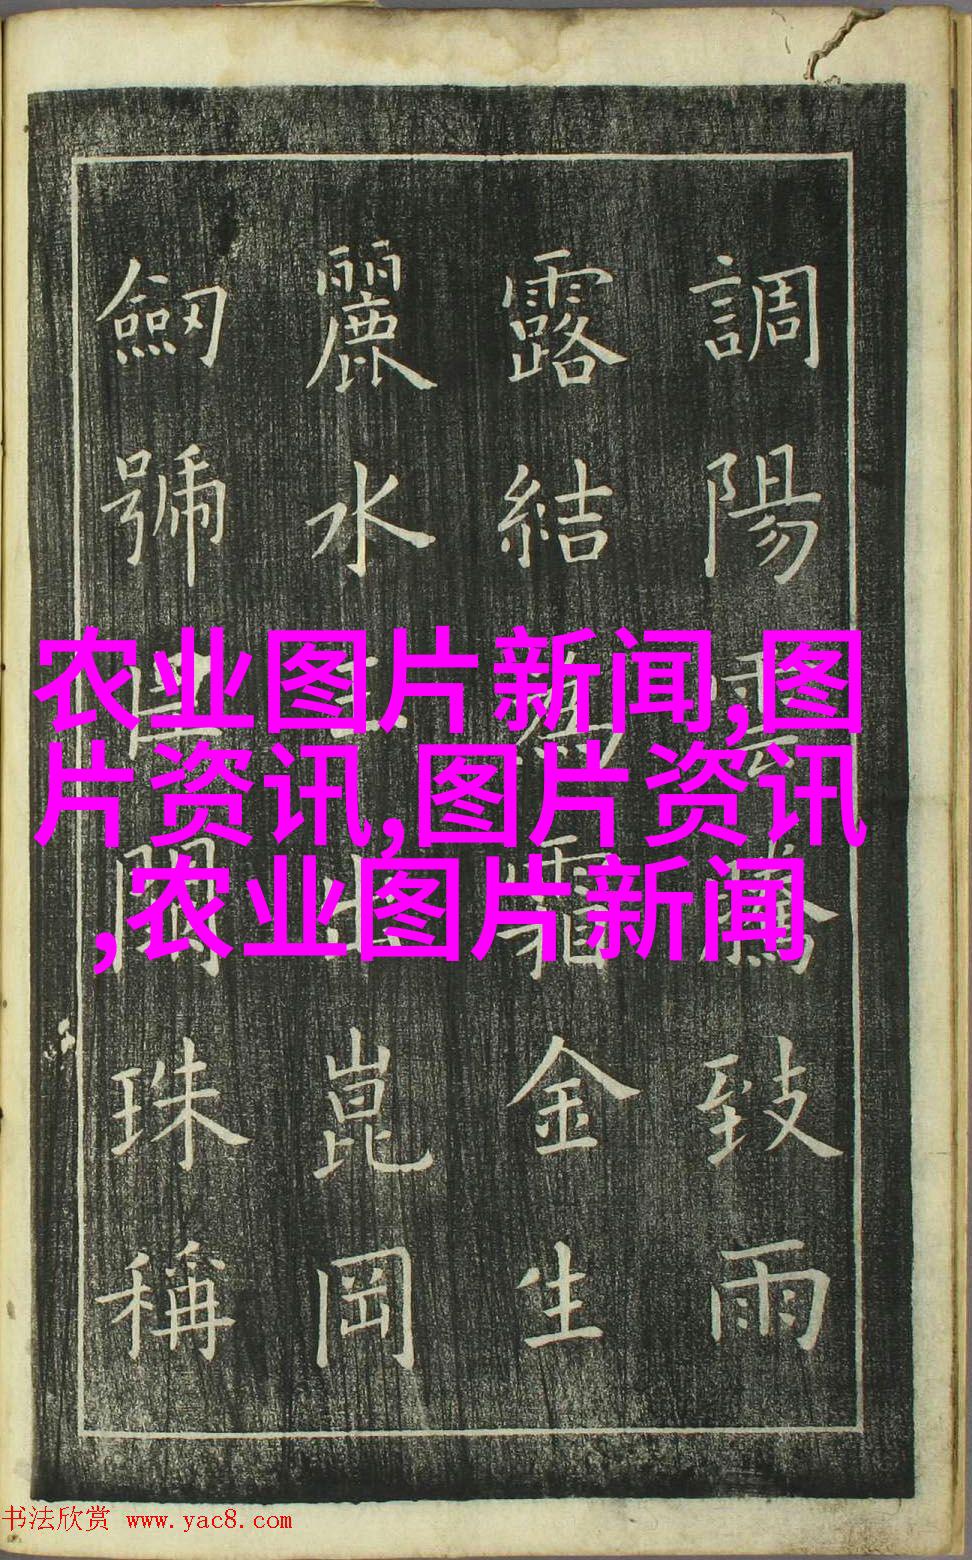 調陽雲騰致雨
露結為霜金生
麗水玉出崑岡
劔號巨闕珠稱
农业图片新闻,图
片资讯,图片资讯
,农业图片新闻
书法欣赏 www.yac8.com